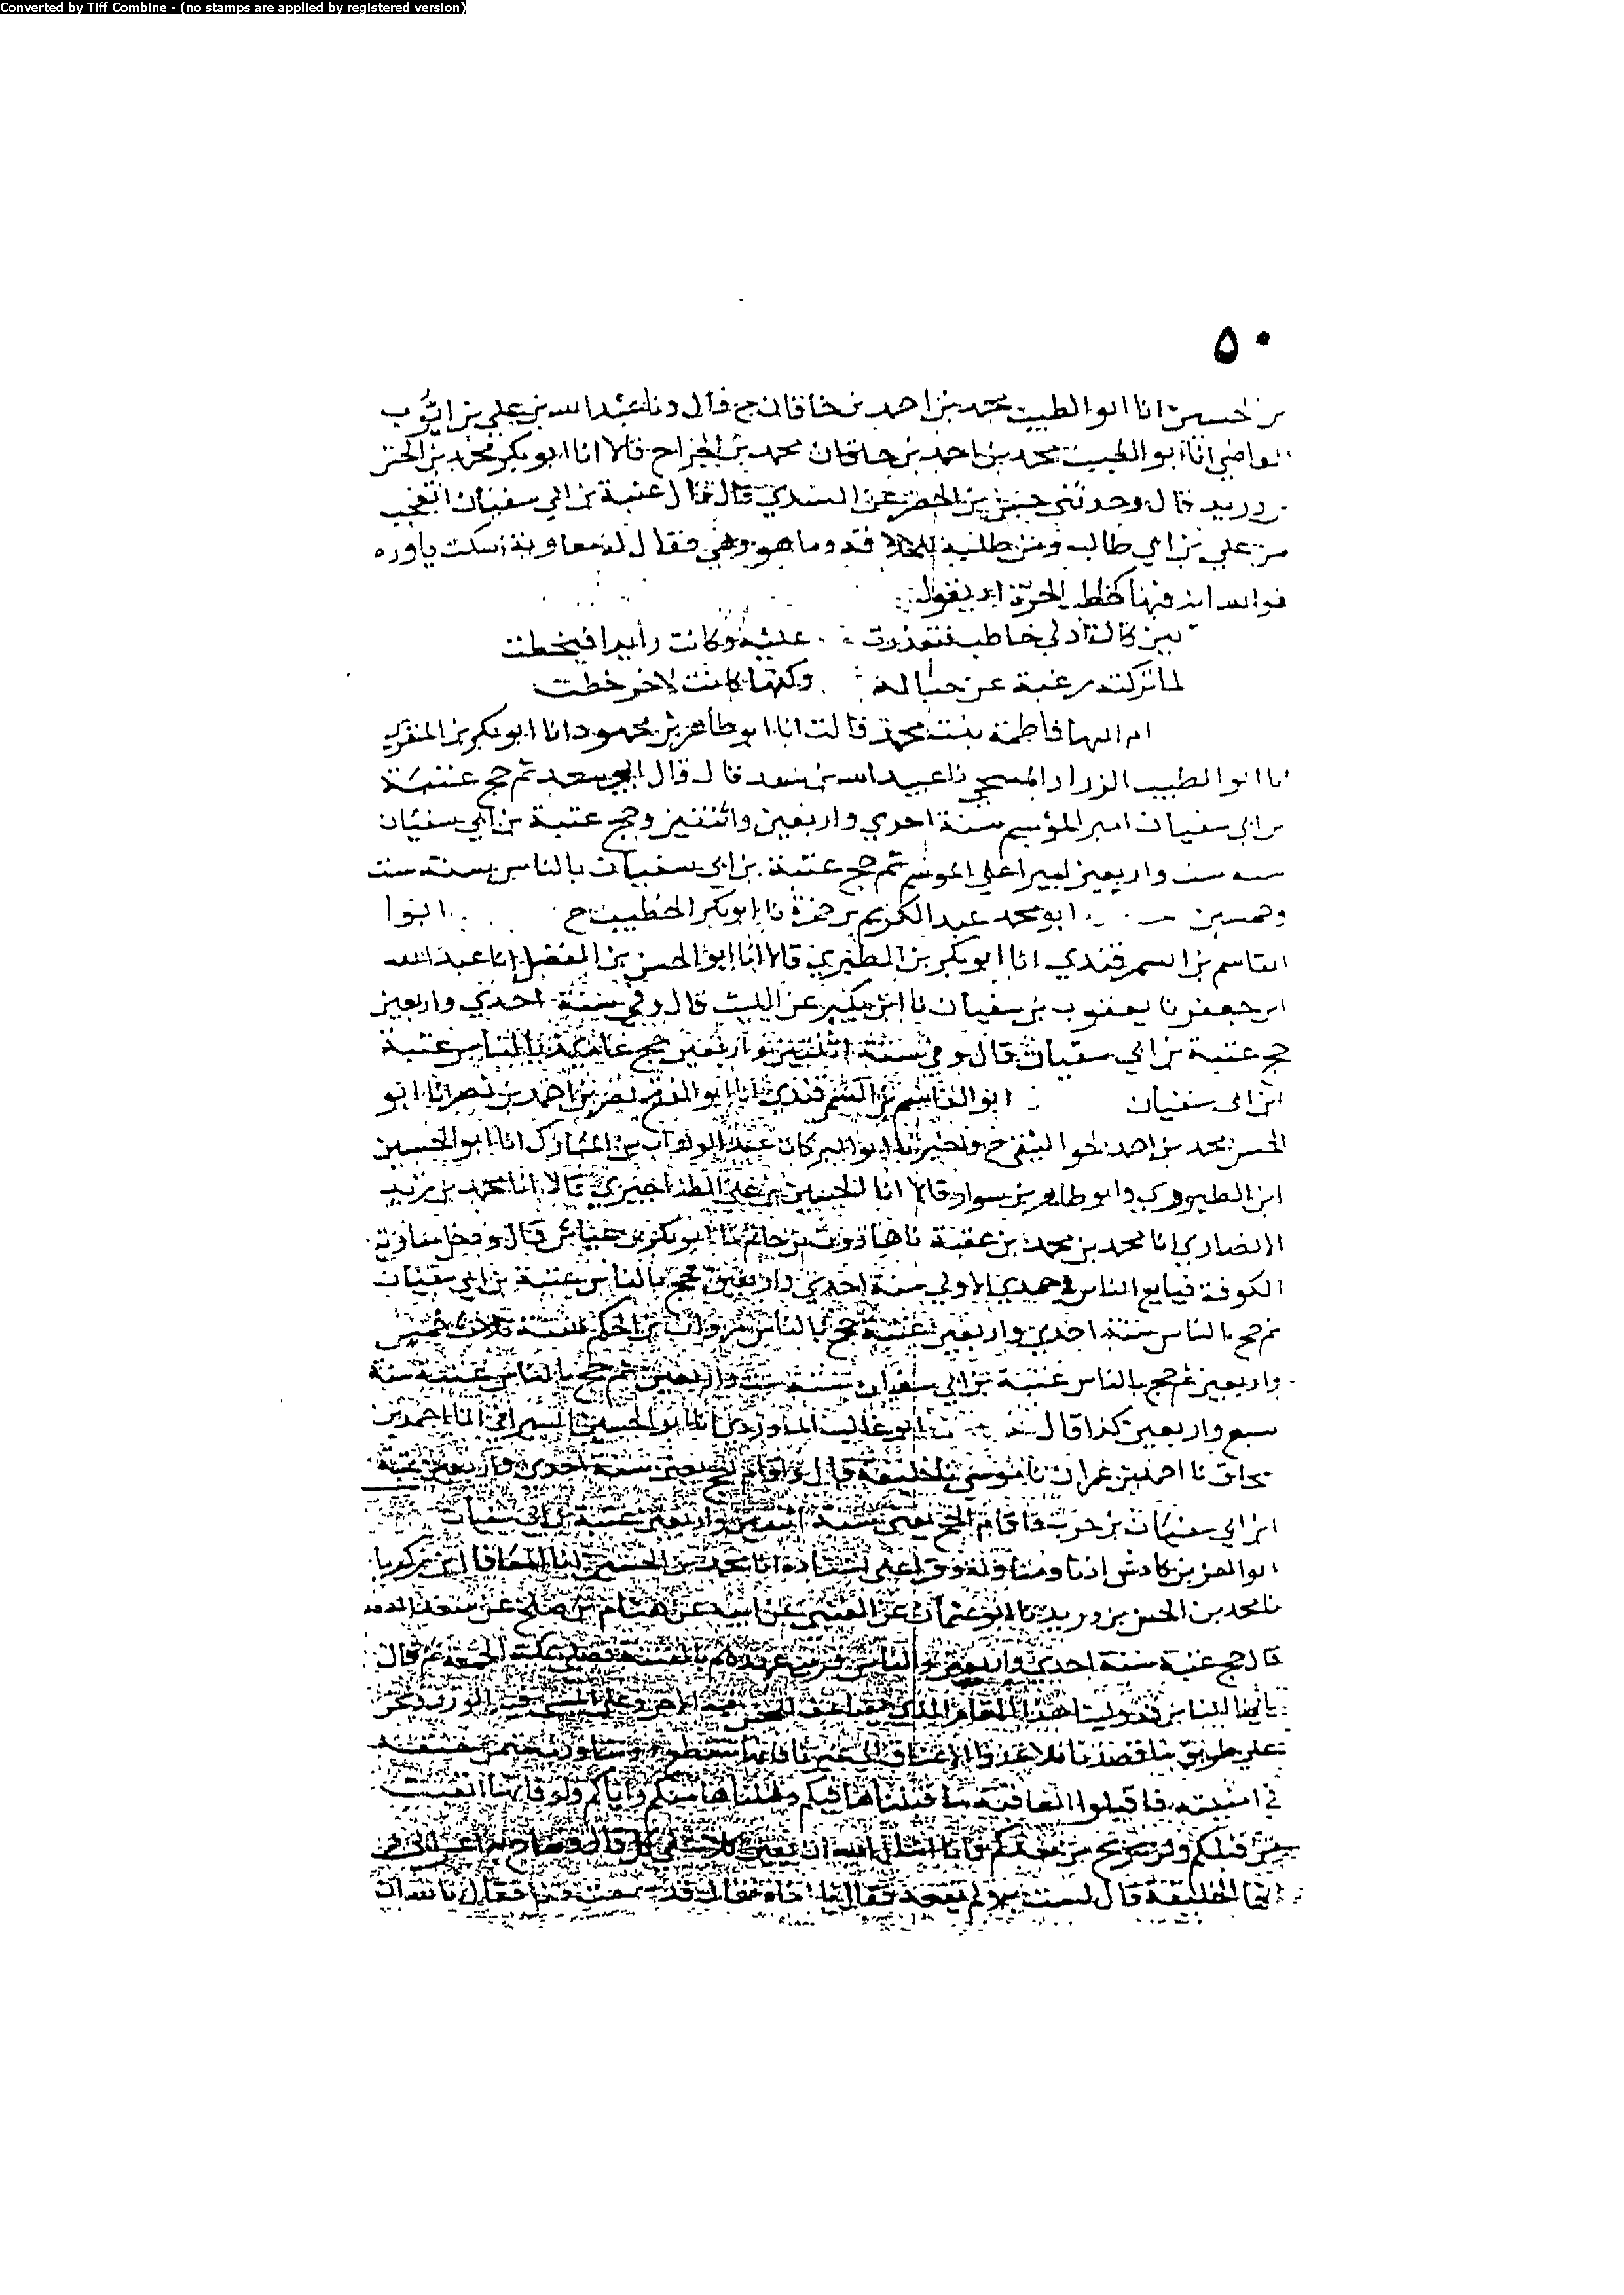 Converted by Tiff Combine - (no stamps are applied by registered version)
٥٠
بن الحسين انا ابو الطيب محمد بن احمد بن خاقان ح قال ونا عبد الله بن علي بن ايوب
القاضي انا ابو الطيب محمد بن احمد بن خاقان محمد بن الجراح قالا انا ابو بكر محمد بن الحسن
بن دريد قال وحدثني بن الخضر عن السندي قال قال عتبة بن ابي سفيان اتعجب
من علي بن ابي طالب ومن طلبه للخلافة وما هو وهي فقال له معاوية اسكت ياوره
فوالله انه فيها كخاطب الحرة اذ يقول
لئن كان ادلي خاطب فتعذرت عليه وكانت رايدا فتخطت
لما تركته رغبة عن حباله ولكنها كانت لاخر خطت
ام البها فاطمة بنت محمد قالت انا ابو طاهر بن محمود انا ابو بكر بن المقري
انا ابو الطيب الزراد المنبجي نا عبيد الله بن سعد قال قال ابي سعد ثم حج عتبة
بن ابي سفيان امير الموسم سنة احدي واربعين واثنتين وحج عتبة بن ابي سفيان
سنه ست واربعين اميرا علي الموسم ثم حج عتبة بن ابي سفيان بالناس سنة ست
وخمسين ابو محمد عبد الكريم بن حمزة نا ابو بكر الخطيب ح ابوا
القاسم بن السمرقندي انا ابو بكر بن الطبري قالا انا ابو الحسن بن الفضل انا عبد الله
ابن جعفر نا يعقوب بن سفيان نا ابن بكير عن الليث قال وفي سنة احدي واربعين
حج عتبة بن ابي سفيان قال وفي سنة اثنتين واربعين حج عامئذ بالناس عتبة
ابن ابي سفيان ابو القاسم بن السمرقندي انا ابو الفتح نصر بن احمد بن نصر انا ابو
الحسن محمد بن احمد الجواليقي ح واخبرنا ابو البركات عبد الوهاب بن المبارك انا ابو الحسين
ابن الطيوري وابو طاهر بن سوار قالا انا الحسين بن علي الطناجيري قالا انا محمد بن زيد
الانصاري انا محمد بن محمد بن عقبة نا هارون بن حاتم نا ابو بكر بن عياش قال ودخل معاوية
الكوفة فبايع الناس في جمدي الاولي سنة احدي واربعين فحج بالناس عتبة بن ابي سفيان
ثم حج بالناس سنة احدي واربعين عتبة حج بالناس مروان بن الحكم سنة ثلاث
واربعين ثم حج بالناس عتبة بن ابي سفيان سنة ست واربعين ثم حج بالناس عتبة سنة
سبع واربعين كذا قال ابو غالب الماوردي انا ابو الحسين السيرافي انا احمد بن
اسحاق نا احمد بن عمران نا موسي نا خليفة قال واقام الحج يعني سنة احدي واربعين عتبة
ابن ابي سفيان بن حرب فاقام الحج يعني سنة اثنتين واربعين عتبة بن ابي سفيان
ابو العز بن كادش اذنا ومناولة وقرا علي اسناده انا محمد بن الحسين انا المعافا ابن زكريا
نا محمد بن الحسن بن دريد نا ابو عثمان عن العتبي عن ابيه عن هشام بن صالح عن سعد
قال حج عتبة سنة احدي واربعين والناس قريب عهدهم بالفتنة فصلي بمكة الجمعة ثم قال
يا ايها الناس قد ولينا هذا المقام الذي يضاعف للمحسن فيه الاجر وعلي المسي فيه الوزر ونحن
علي طريق ما قصدنا فلا تمدوا الاعناق الي غيرنا فانها تنقطع دوننا ورب متمن حتفه
في امنيته فاقبلوا العافية ما قبلناها فيكم وقبلناها منكم واياكم ولو فانها اتعبت
من قبلكم ولن تريح من بعدكم وانا اسال الله ان يعين كلا علي كل قال وصاح به اعرابي
ايها الخليفة قال لست به ولم تبعد فقال يا اخاه فقال قد سمعت فقل فقال